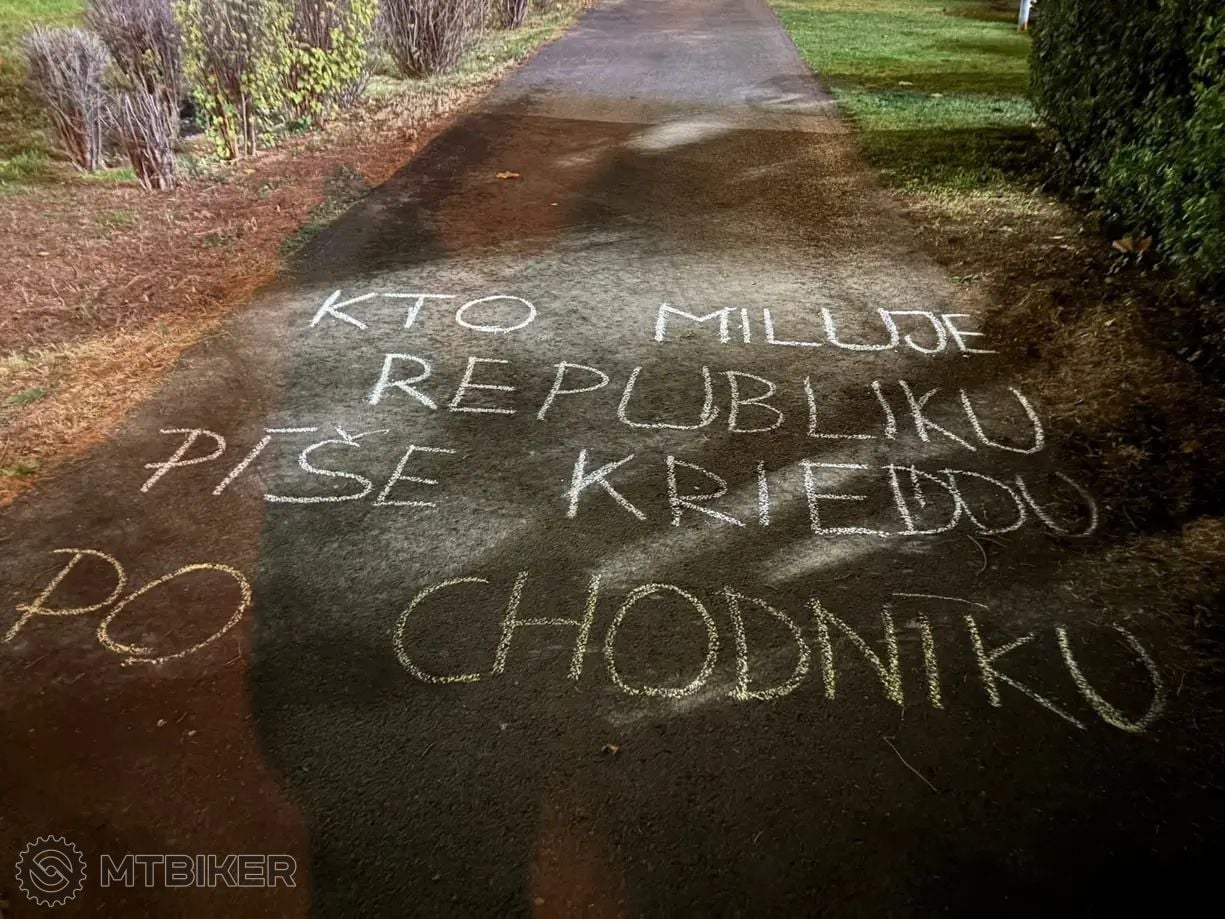 KTO MILUJE
REPUBLIKU
PÍŠE KRIEDOU
PO CHODNÍKU
MTBIKER